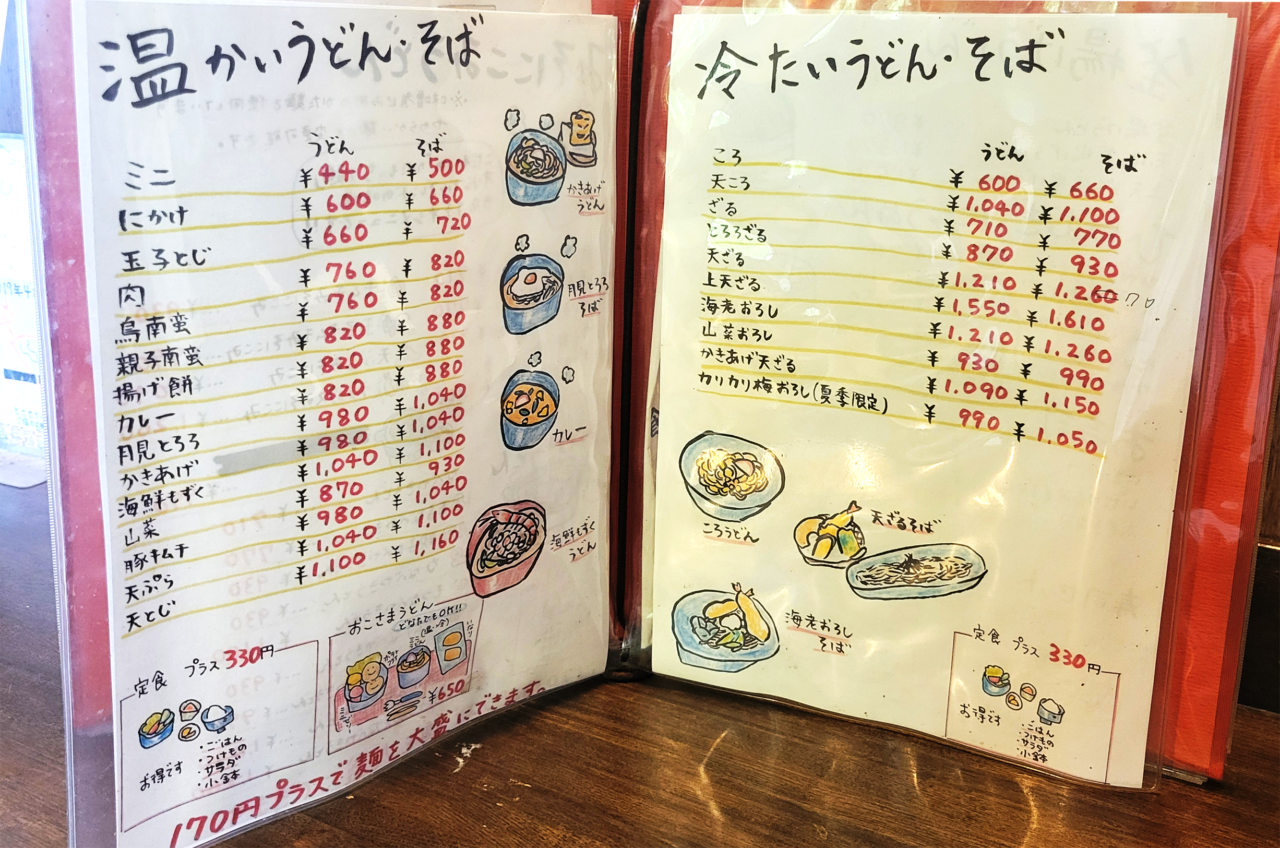 温かいうどん・そば
うどん そば
ミニ ¥440 ¥500
にかけ ¥600 ¥660
玉子とじ ¥660 ¥720
肉 ¥760 ¥820
鳥南蛮 ¥760 ¥820
親子南蛮 ¥820 ¥880
揚げ餅 ¥820 ¥880
カレー ¥820 ¥880
月見とろろ ¥980 ¥1,040
かきあげ ¥980 ¥1,040
海鮮もずく ¥1,040 ¥1,100
山菜 ¥870 ¥930
豚キムチ ¥980 ¥1,040
天ぷら ¥1,040 ¥1,100
天とじ ¥1,100 ¥1,160
かきあげ
うどん
月見とろろ
そば
カレー
海鮮もずく
うどん
定食 プラス330円
お得です
・ごはん
・つけもの
・サラダ
・小鉢
おこさまうどん
どなたでもOK!!
ミニうどん
(温・冷)
いなり
¥650
170円プラスで麺を大盛にできます。
冷たいうどん・そば
うどん そば
ころ ¥600 ¥660
天ころ ¥1.040 ¥1.100
ざる ¥710 ¥770
とろろざる ¥870 ¥930
天ざる ¥1.210 ¥1.260 70
上天ざる ¥1,550 ¥1.610
海老おろし ¥1.210 ¥1.260
山菜おろし ¥930 ¥990
かきあげ天ざる ¥1.090 ¥1,150
カリカリ梅おろし(夏季限定) ¥990 ¥1,050
ころうどん
天ざるそば
海老おろし
そば
定食 プラス 330円
お得です
・ごはん
・つけもの
・サラダ
・小鉢